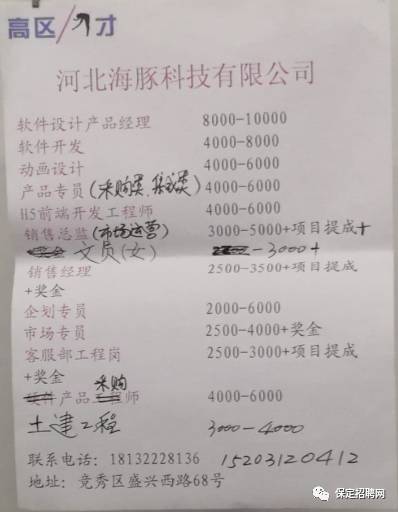 高区/人才
河北海豚科技有限公司
软件设计产品经理 8000-10000
软件开发 4000-8000
动画设计 4000-6000
产品专员(采购类、集成类) 4000-6000
H5前端开发工程师 4000-6000
销售总监(市场运营) 3000-5000+项目提成+
文员(女) -3000+
销售经理 2500-3500+项目提成
+奖金
企划专员 2000-6000
市场专员 2500-4000+奖金
客服部工程岗 2500-3000+项目提成
+奖金 采购
产品 师 4000-6000
土建工程 3000-4000
联系电话: 18132228136 15203120412
地址: 竞秀区盛兴西路68号
保定招聘网